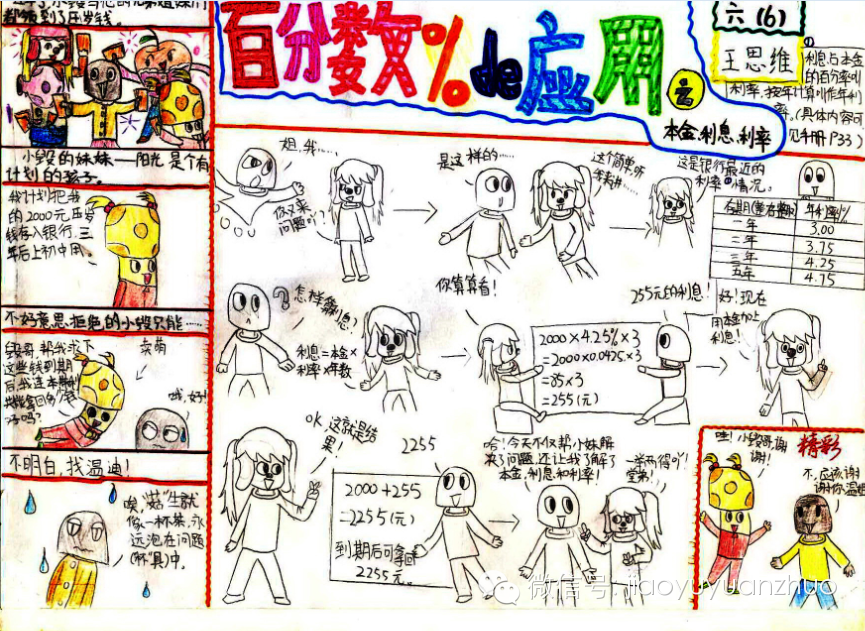 都领到了压岁钱.
小毁的妹妹——阳光是个有
计划的孩子。
我计划把我
的2000元压岁
钱存入银行,三
年后上初中用。
不好意思拒绝的小毁只能……
毁哥,帮我求下
这些钱到期
后,我连本带利
卖萌
哦,好!
不明白,找温迪!
唉,“菇”生就
像一杯茶,永
远泡在问题
(杯具)中。
百分数%de应用
之
本金.利息.利率
六(6)
王思维
利息与本金
的百分率叫
利率,按年计算叫作年利
率。(具体内容可
见手册P33)
姐,我……
你又来
问题吖?
是这样的……
这个简单,你
看我弄……
这是银行最近的
利率情况。
年利率/%
一年 3.00
二年 3.75
三年 4.25
五年 4.75
怎样算利息?
利息=本金×
利率×年数
你算算看!
2000×4.25%×3
=2000×0.0425×3
=85×3
=255(元)
255元的利息!
好!现在
用本金加上
利息!
OK,这就是结
果!
2255
2000+255
=2255(元)
到期后可拿回
2255元。
哈!今天不仅帮小妹解
决了问题,还让我了解了
本金,利息和利率!
一举两得吖!
堂弟!
精彩
哇!小毁哥谢
谢!
不,应该谢
谢你温迪
微信号: jiaoyuyuanzhuo